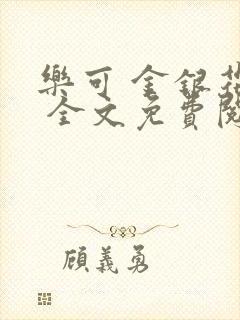 樂可 金銀花
全文免費閱
顧義勇